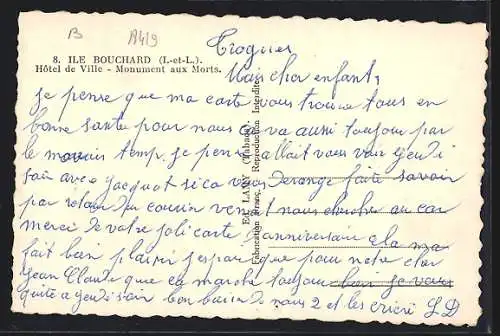 B A419
8. ILE BOUCHARD (I.-et-L.).
Hôtel de Ville - Monument aux Morts.
Trogues
Mais cher enfants
je pense que ma carte vous trouve tous en
bone sante pour nous ca va aussi toujour par
le mauvais temp. je pense allait vous voir jeudi
soir avec Jacquot si ca vous derange faite savoir
par retour du courrier vennet nous chercher au car
merci de votre joli carte d'anniversaire a la ma
fait bien plaisir j'espaire que pour notre cher
Jean Claude que ca marche toujour bien je vous
quitte a jeudi soir bon baiser de nous 2 et les J D
Ed. LAMY (Tabacs).
Fabrication Franç. Reproduction Interdite